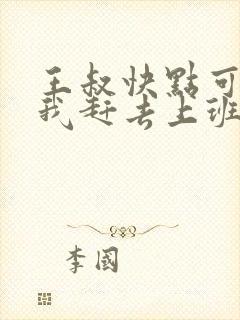 王叔快點可
我赶去上班
李國